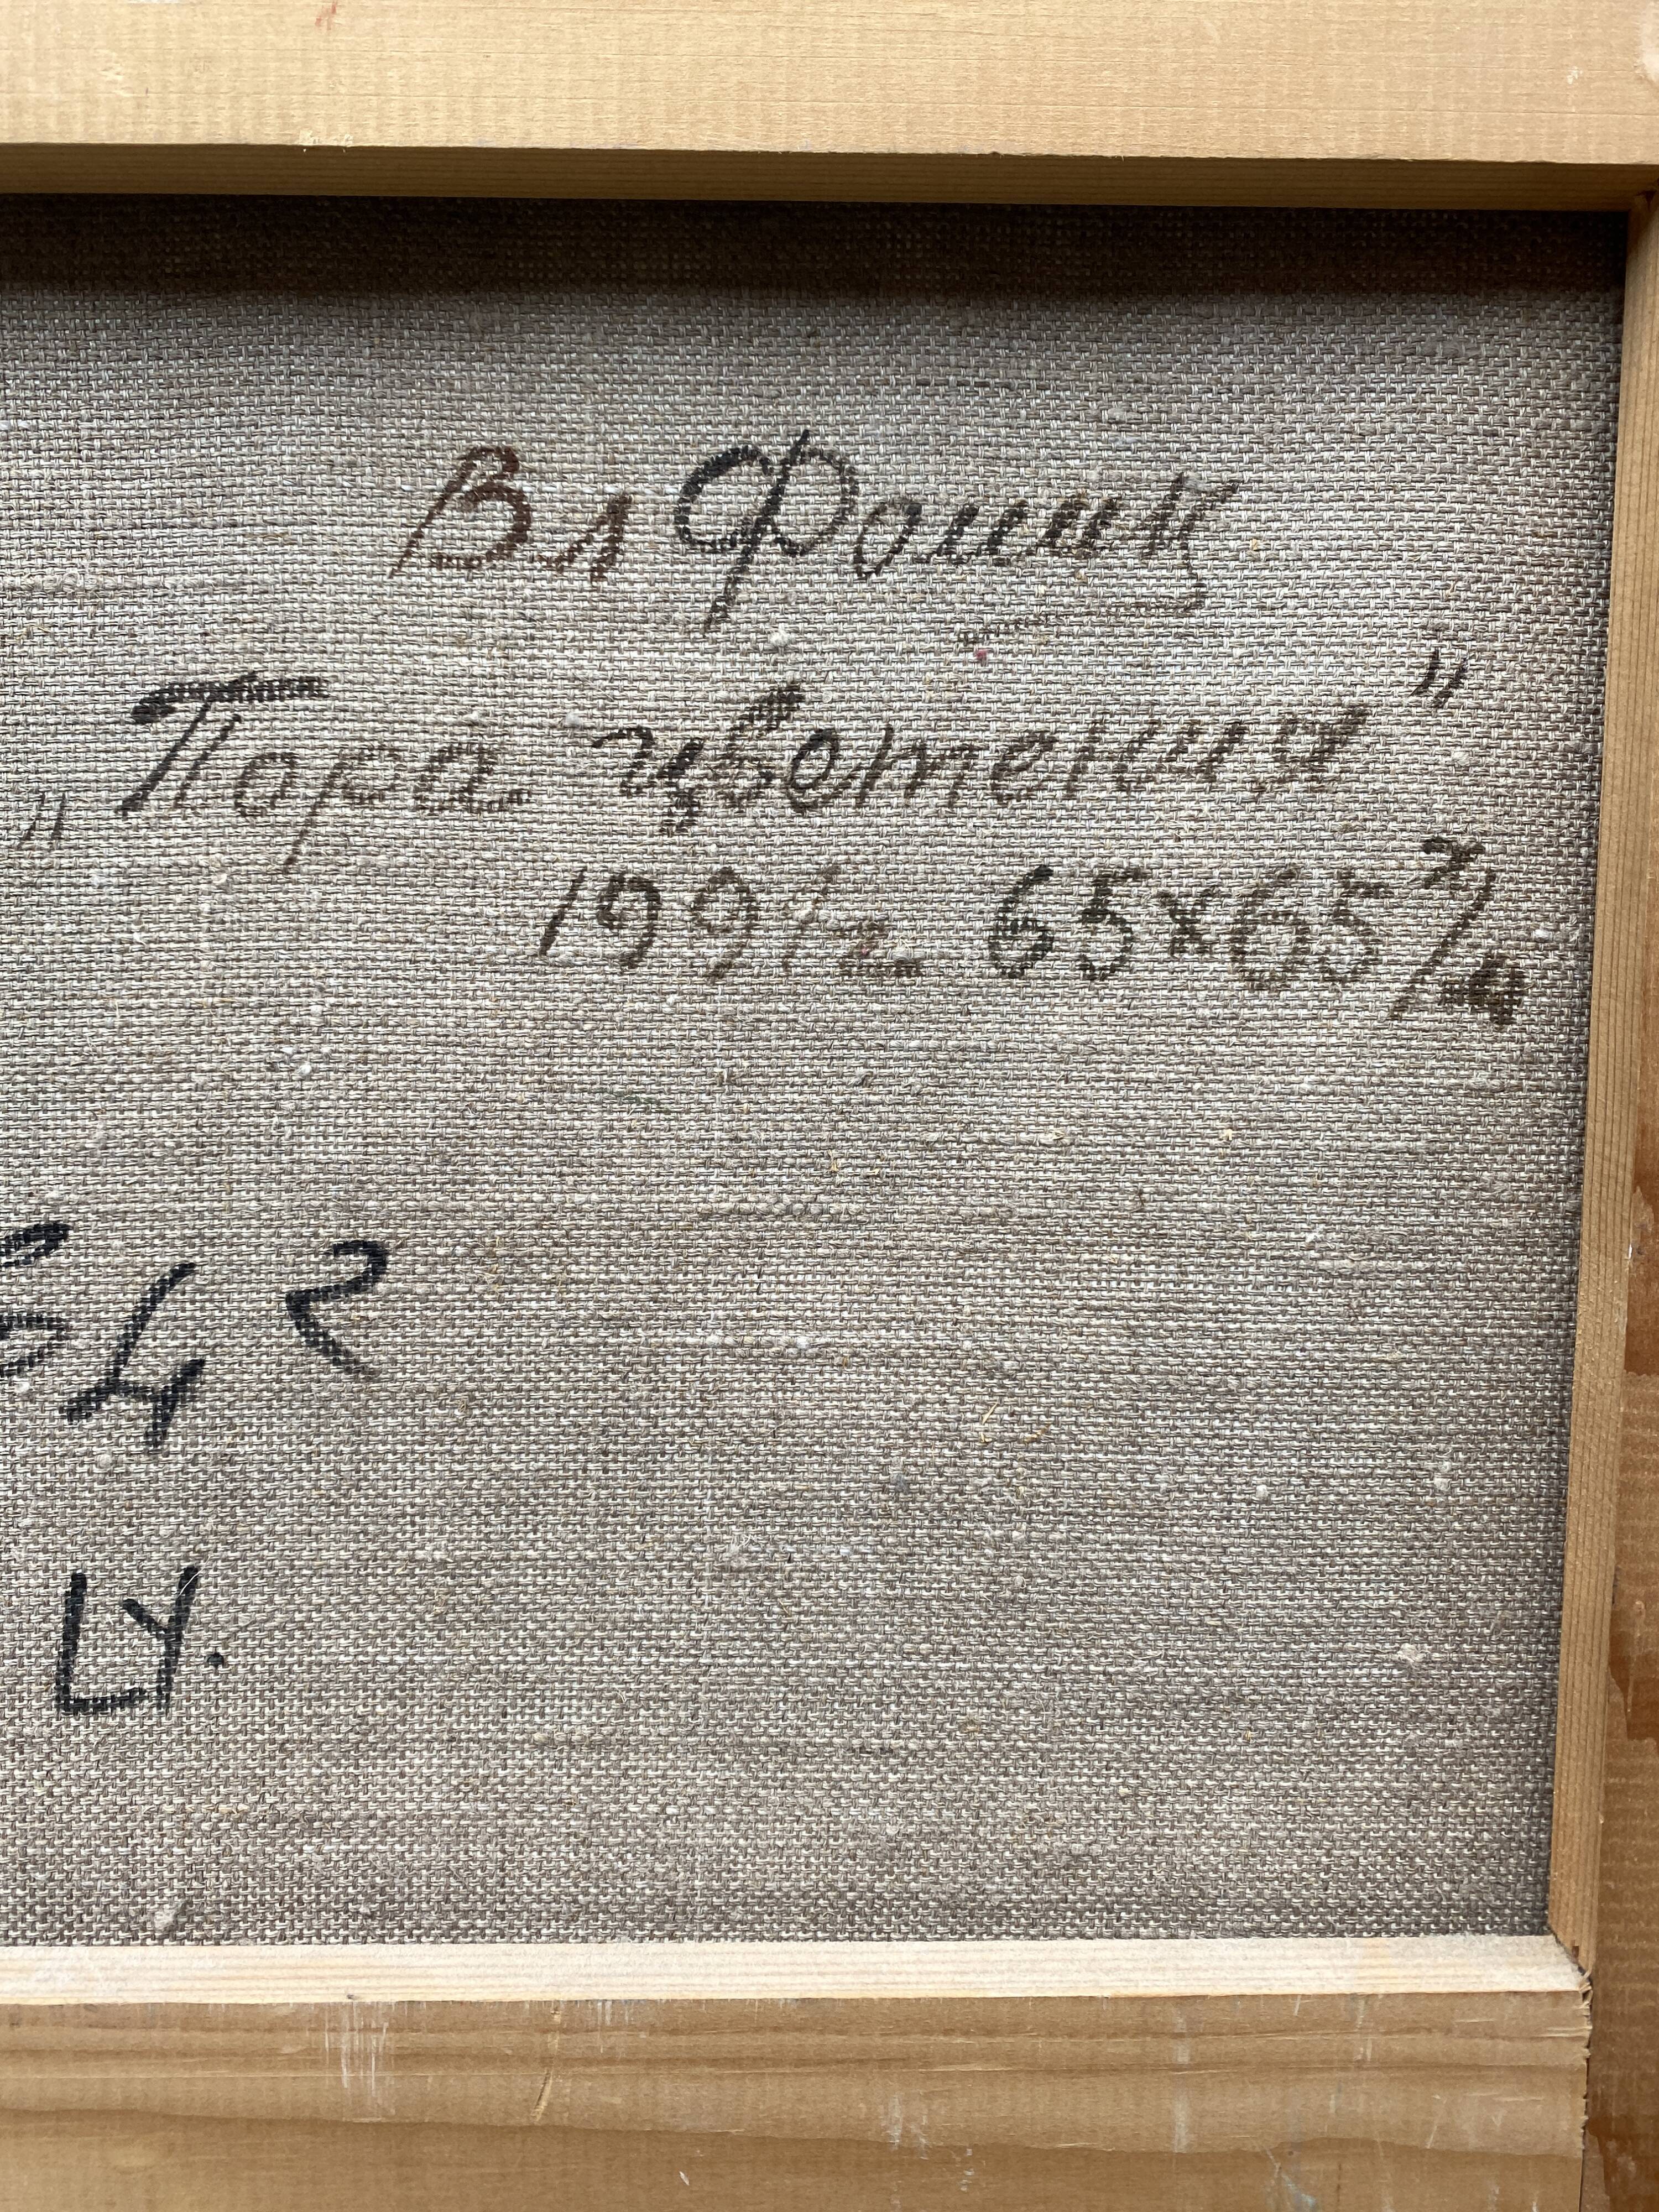 Вл Фомин
„Пора цветения"
1991г. 65x65 х/м
54 2